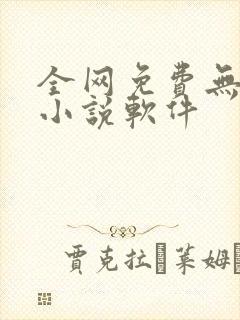 全网免費無
小説軟件
賈克拉 萊姆